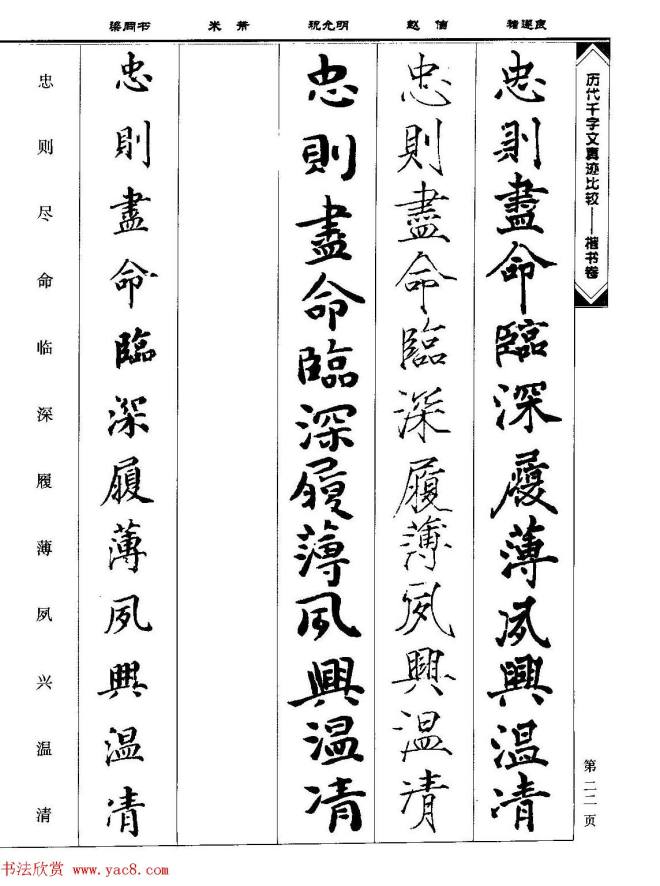 历代千字文真迹比较——楷书卷
第二二页
褚遂良
忠則盡命臨深履薄夙興温凊
赵佶
忠則盡命臨深履薄夙興温凊
祝允明
忠則盡命臨深履薄夙興温凊
米芾
梁同书
忠則盡命臨深履薄夙興温凊
忠则尽命临深履薄夙兴温清
书法欣赏 www.yac8.com